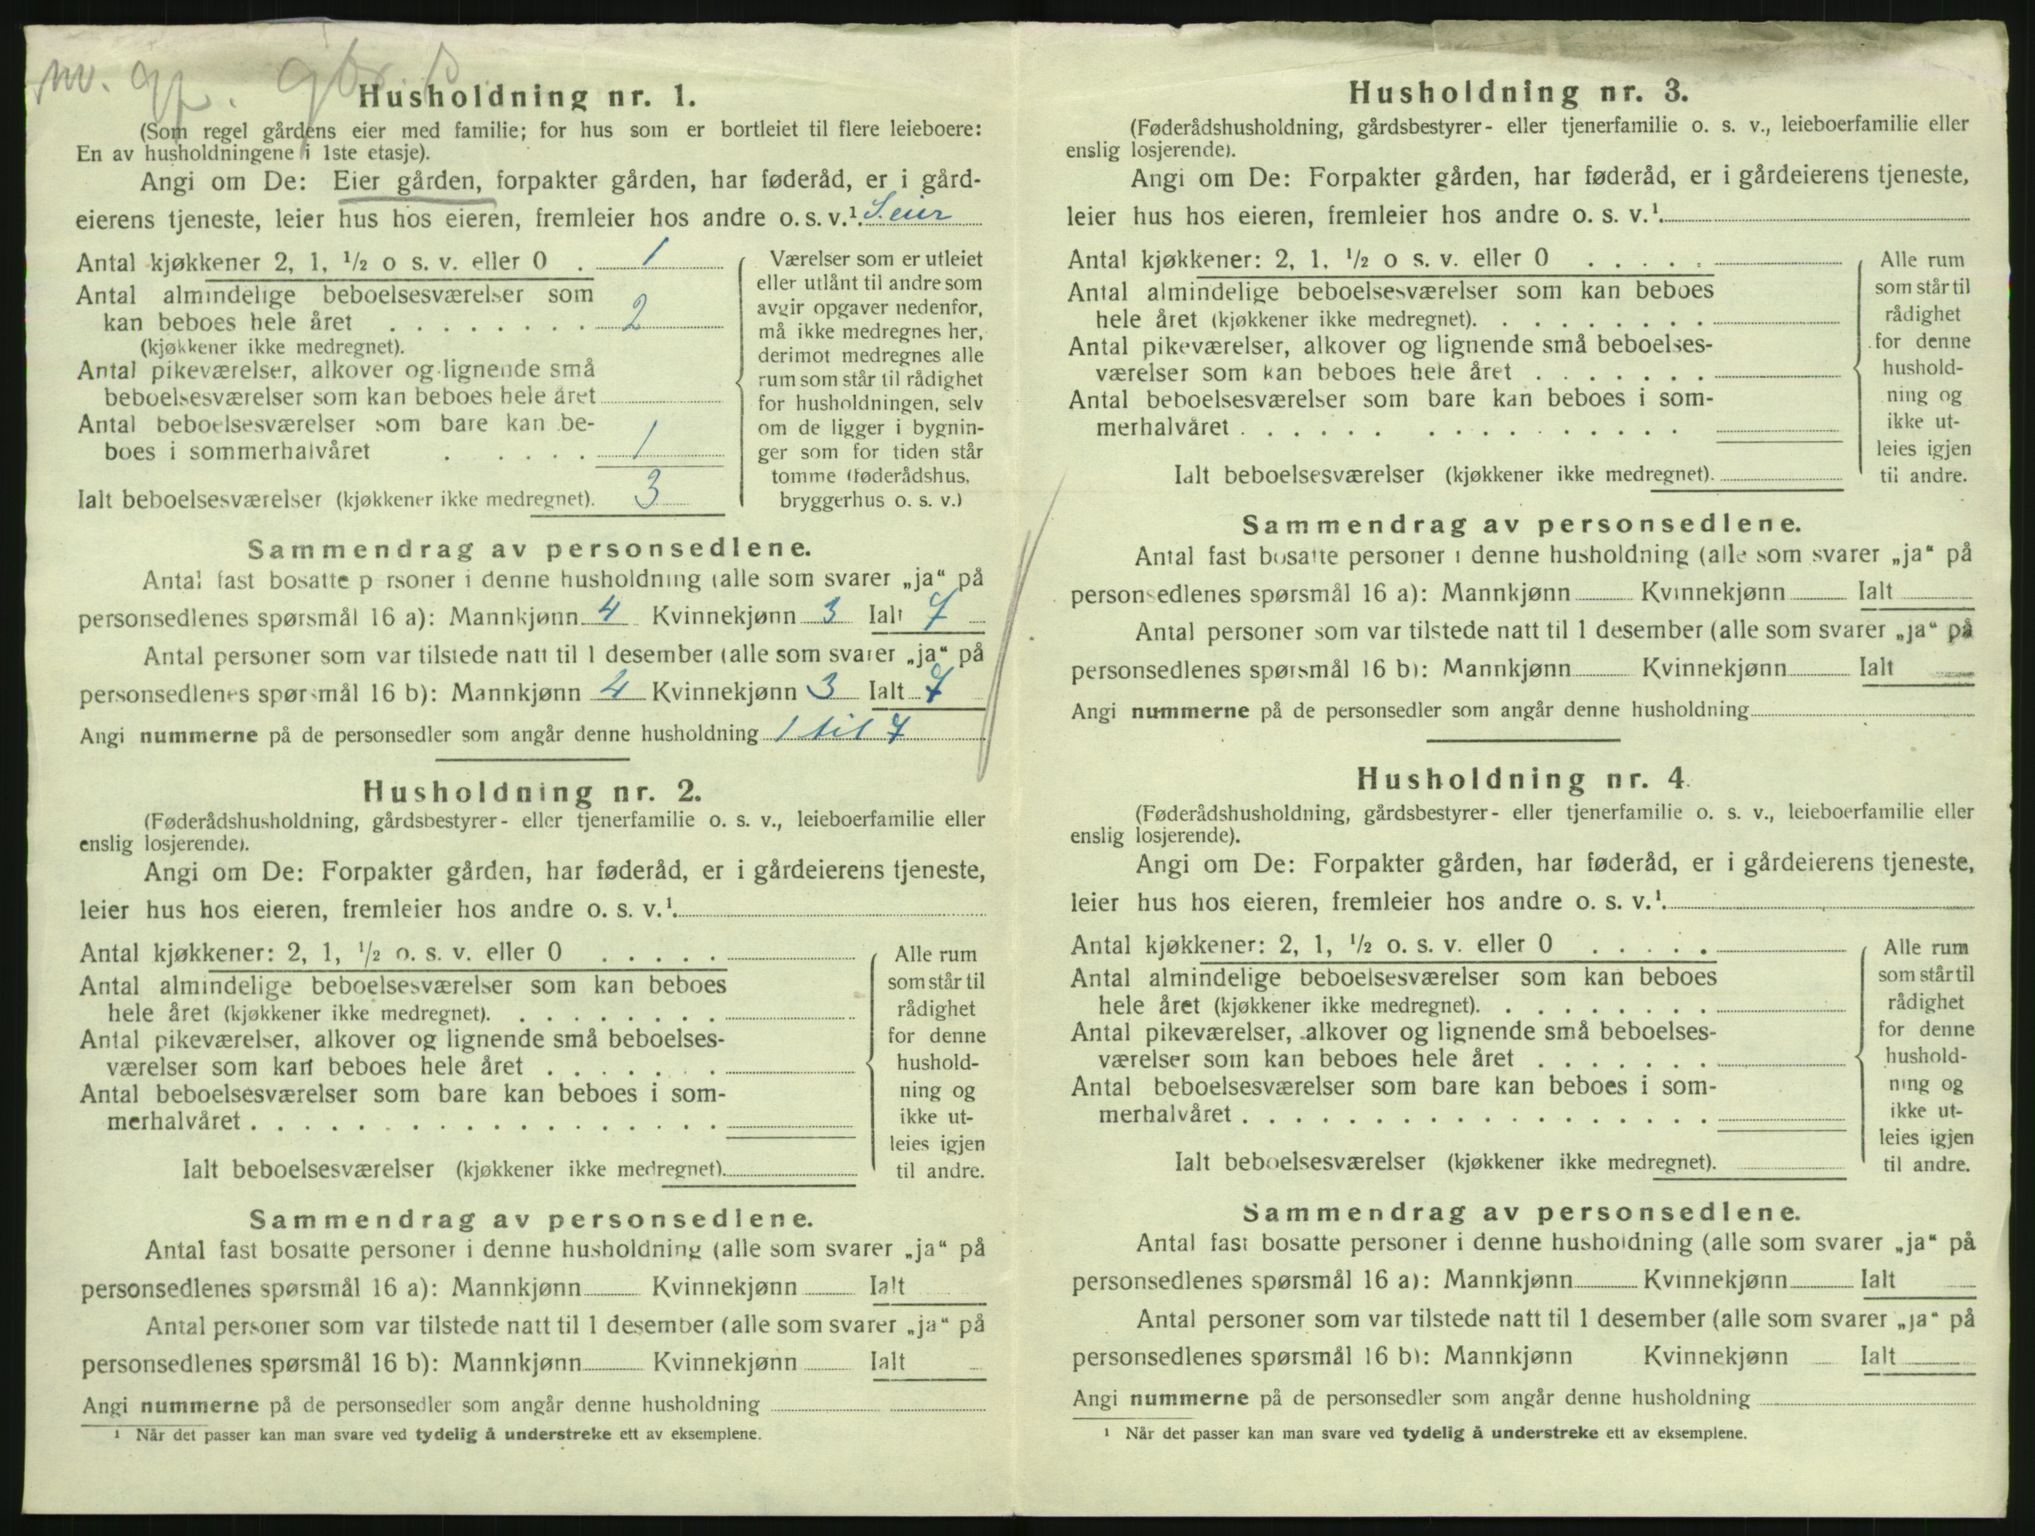 Husholdning nr. 1.
(Som regel gårdens eier med familie; for hus som er bortleiet til flere leieboere:
En av husholdningene i 1ste etasje).
Angi om De: Eier gården, forpakter gården, har føderåd, er i gård-
eierens tjeneste, leier hus hos eieren, fremleier hos andre o. s. v.¹
Antal kjøkkener 2, 1, ½ o s. v. eller 0 . 1
Antal almindelige beboelsesværelser som
kan beboes hele året . . . . . . . . 2
(kjøkkener ikke medregnet).
Antal pikeværelser, alkover og lignende små
beboelsesværelser som kan beboes hele året
Antal beboelsesværelser som bare kan be-
boes i sommerhalvåret . . . . . 1
Ialt beboelsesværelser (kjøkkener ikke medregnet). 3
Værelser som er utleiet
eller utlånt til andre som
avgir opgaver nedenfor,
må ikke medregnes her,
derimot medregnes alle
rum som står til rådighet
for husholdningen, selv
om de ligger i bygnin-
ger som for tiden står
tomme (føderådshus,
bryggerhus o. s. v.)
Sammendrag av personsedlene.
Antal fast bosatte p rsoner i denne husholdning (alle som svarer „ja“ på
personsedlenes spørsmål 16 a): Mannkjønn 4 Kvinnekjønn 3 Ialt 7
Antal personer som var tilstede natt til 1 desember (alle som svarer „ja“ på
personsedlenes spørsmål 16 b): Mannkjønn 4 Kvinnekjønn 3 Ialt 7
Angi nummerne på de personsedler som angår denne husholdning 1 til 7
Husholdning nr. 2.
(Føderådshusholdning, gårdsbestyrer- eller tjenerfamilie o. s. v., leieboerfamilie eller
enslig losjerende).
Angi om De: Forpakter gården, har føderåd, er i gårdeierens tjeneste,
leier hus hos eieren, fremleier hos andre o. s. v.¹.
Antal kjøkkener: 2, 1, ½ o. s. v. eller 0 . . . . .
Antal almindelige beboelsesværelser som kan beboes
hele året (kjøkkener ikke medregnet). . . . . . . . .
Antal pikeværelser, alkover og lignende små beboelses-
værelser som kan beboes hele året . . . . . . .
Antal beboelsesværelser som bare kan beboes i som-
merhalvåret . . . . . . . . . . . . . . . . . .
Ialt beboelsesværelser (kjøkkener ikke medregnet).
Alle rum
som står til
rådighet
for denne
hushold-
ning og
ikke ut-
leies igjen
til andre.
Sammendrag av personsedlene.
Antal fast bosatte personer i denne husholdning (alle som svarer „ja“ på
personsedlenes spørsmål 16 a): Mannkjønn Kvinnekjønn Ialt
Antal personer som var tilstede natt til 1 desember (alle som svarer „ja“ på
personsedlenes spørsmål 16 b): Mannkjønn Kvinnekjønn Ialt
Angi nummerne på de personsedler som angår denne husholdning
¹ Når det passer kan man svare ved tydelig å understreke ett av eksemplene.
Husholdning nr. 3.
(Føderådshusholdning, gårdsbestyrer- eller tjenerfamilie o. s. v., leieboerfamilie eller
enslig losjerende).
Angi om De: Forpakter gården, har føderåd, er i gårdeierens tjeneste,
leier hus hos eieren, fremleier hos andre o. s. v.¹.
Antal kjøkkener: 2, 1, ½ o s. v. eller 0 . . . . .
Antal almindelige beboelsesværelser som kan beboes
hele året (kjøkkener ikke medregnet). . . . . . . . .
Antal pikeværelser, alkover og lignende små beboelses-
værelser som kan beboes hele året . . . . . . .
Antal beboelsesværelser som bare kan beboes i som-
merhalvåret . . . . . . . . . . . . . . .
Ialt beboelsesværelser (kjøkkener ikke medregnet).
Alle rum
som står til
rådighet
for denne
hushold-
ning og
ikke ut-
leies igjen
til andre.
Sammendrag av personsedlene.
Antal fast bosatte personer i denne husholdning (alle som svarer „ja“ på
personsedlenes spørsmål 16 a): Mannkjønn Kvinnekjønn Ialt
Antal personer som var tilstede natt til 1 desember (alle som svarer „ja“ på
personsedlenes spørsmål 16 b): Mannkjønn Kvinnekjønn Ialt
Angi nummerne på de personsedler som angår denne husholdning
Husholdning nr. 4.
(Føderådshusholdning, gårdsbestyrer- eller tjenerfamilie o. s. v., leieboerfamilie eller
enslig losjerende).
Angi om De: Forpakter gården, har føderåd, er i gårdeierens tjeneste,
leier hus hos eieren, fremleier hos andre o. s. v.¹.
Antal kjøkkener: 2, 1, ½ o. s. v. eller 0 . . . . .
Antal almindelige beboelsesværelser som kan beboes
hele året (kjøkkener ikke medregnet). . . . . . . . .
Antal pikeværelser, alkover og lignende små beboelses-
værelser som kan beboes hele året . . . . . . .
Antal beboelsesværelser som bare kan beboes i som-
merhalvåret . . . . . . . . . . . . . . . . . .
Ialt beboelsesværelser (kjøkkener ikke medregnet).
Alle rum
som står til
rådighet
for denne
hushold-
ning og
ikke ut-
leies igjen
til andre.
Sammendrag av personsedlene.
Antal fast bosatte personer i denne husholdning (alle som svarer „ja“ på
personsedlenes spørsmål 16 a): Mannkjønn Kvinnekjønn Ialt
Antal personer som var tilstede natt til 1 desember (alle som svarer „ja“ på
personsedlenes spørsmål 16 b): Mannkjønn Kvinnekjønn Ialt
Angi nummerne på de personsedler som angår denne husholdning
¹ Når det passer kan man svare ved tydelig å understreke ett av eksemplene.